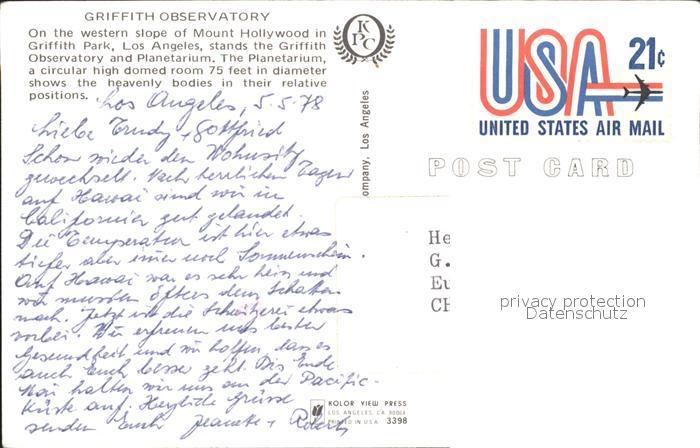 GRIFFITH OBSERVATORY
On the western slope of Mount Hollywood in
Griffith Park, Los Angeles, stands the Griffith
Observatory and Planetarium. The Planetarium,
a circular high domed room 75 feet in diameter
shows the heavenly bodies in their relative
positions.
Los Angeles, 5.5.78
Liebe Trudy + Gottfried
Schon wieder den Wohnsitz
gewechselt. Nach herrlichen Tagen
auf Hawai sind wir in
Californien gut gelandet.
Die Temperatur ist hier etwas
tiefer aber immer noch Sonnenschein.
Auf Hawai war es sehr heiss und
wir mussten öfters dem Schatten
nach. Jetzt ist die Schwitzerei etwas
vorbei. Wir erfreuen uns bester
Gesundheit und wir hoffen, dass es
auch Euch besser geht. Bis Ende
Mai halten wir uns an der Pacific-
Küste auf. Herzliche Grüsse
senden Euch Jeanette + Robert
KPC
ompany, Los Angeles
USA 21¢
UNITED STATES AIR MAIL
POST CARD
He
G.
Eu
CH
privacy protection
Datenschutz
KOLOR VIEW PRESS
LOS ANGELES, CA 90064
PRINTED IN U.S.A. 3398